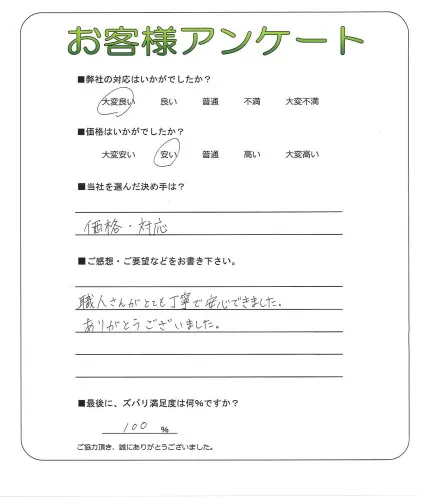 お客様アンケート
■弊社の対応はいかがでしたか？
大変良い 良い 普通 不満 大変不満
■価格はいかがでしたか？
大変安い 安い 普通 高い 大変高い
■当社を選んだ決め手は？
価格・対応
■ご感想・ご要望などをお書き下さい。
職人さんがとても丁寧で安心できました。
ありがとうございました。
■最後に、ズバリ満足度は何%ですか？
100 %
ご協力頂き、誠にありがとうございました。